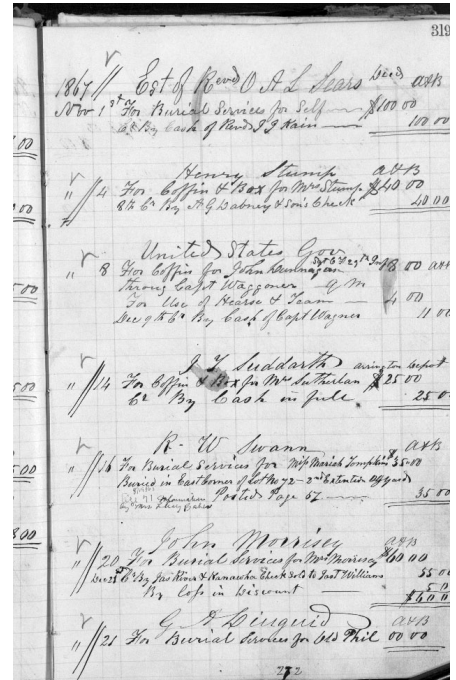 319
1867 // Est of Revd O A L Sears Decd A&B
Nov 1st For Burial Services for Self — $100 00
Cr By Cash of Revd J J Kain — 100 00
Henry Stump A&B
" // 4 For Coffin & Box for Mrs Stump $40 00
8th Cr By A G Dabney & Son's Check 40 00
United States Gov
" 8 For Coffin for John 18 00 A&B
throug Capt Waggoner — q m
For Use of Hearse & Team — 4 00
Dec 9th Cr By Cash of Capt Wagner 11 00
J Y Suddarth Arrington Depot
" // 14 For Coffin & Box for Mr Sutherlan $25 00
Cr By Cash in full 25 0
R - W Swann A&B
" // 16 For Burial Services for Miss Mariah Tompkins $35-00
Buried in East Corner of Lot No 72 - 2nd yard
Posted Page 57 — 35 00
John Morrisey A&B
" // 20 For Burial Services for Mrs Morrisey $60 00
Dec 28 Cr By Jas River & Kanawha Check Sold to Jas Williams 55 00
By Loss in Discount — 5 0
$60 0
G A Linguid A&B
" // 21 For Burial Services for Old Phil 00 00
272